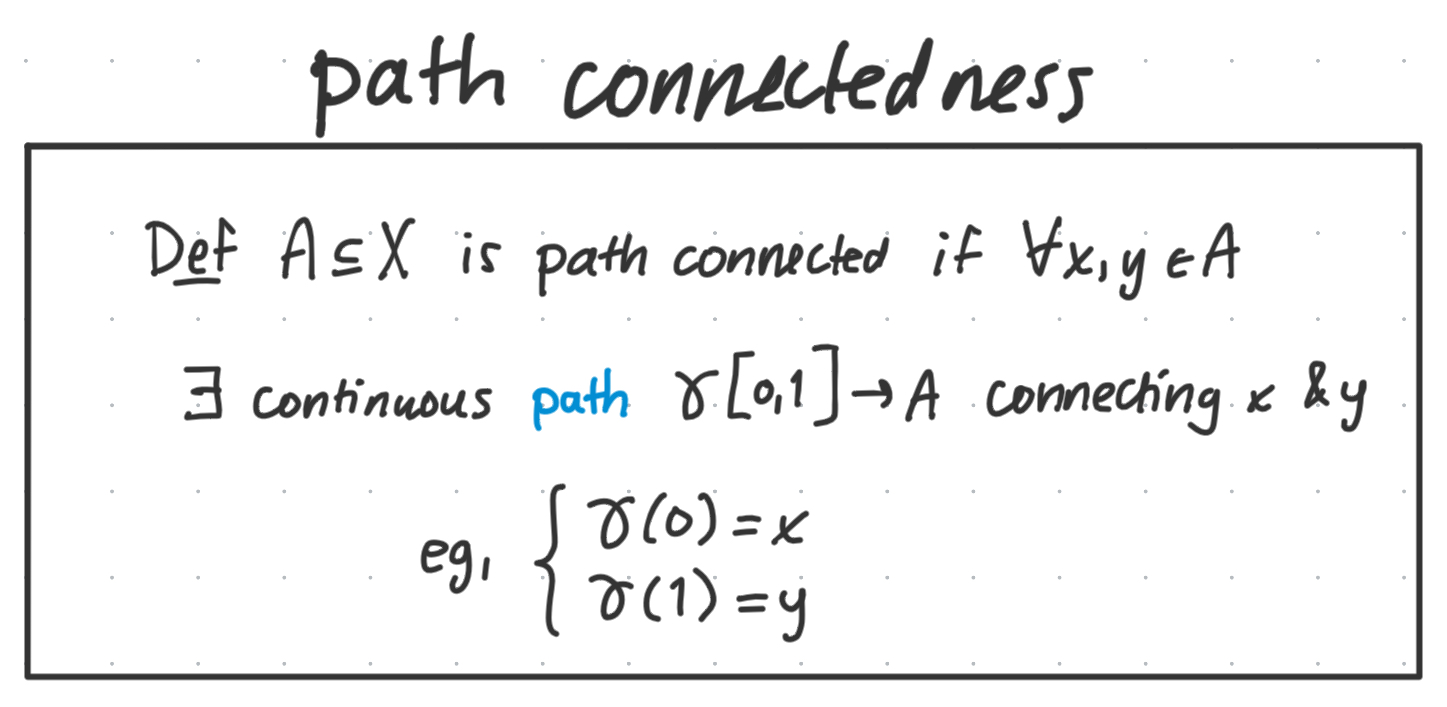 path connectedness
Def A ⊆ X is path connected if ∀x, y ∈ A
∃ continuous path γ[0,1] → A connecting x & y
eg, { γ(0) = x
γ(1) = y